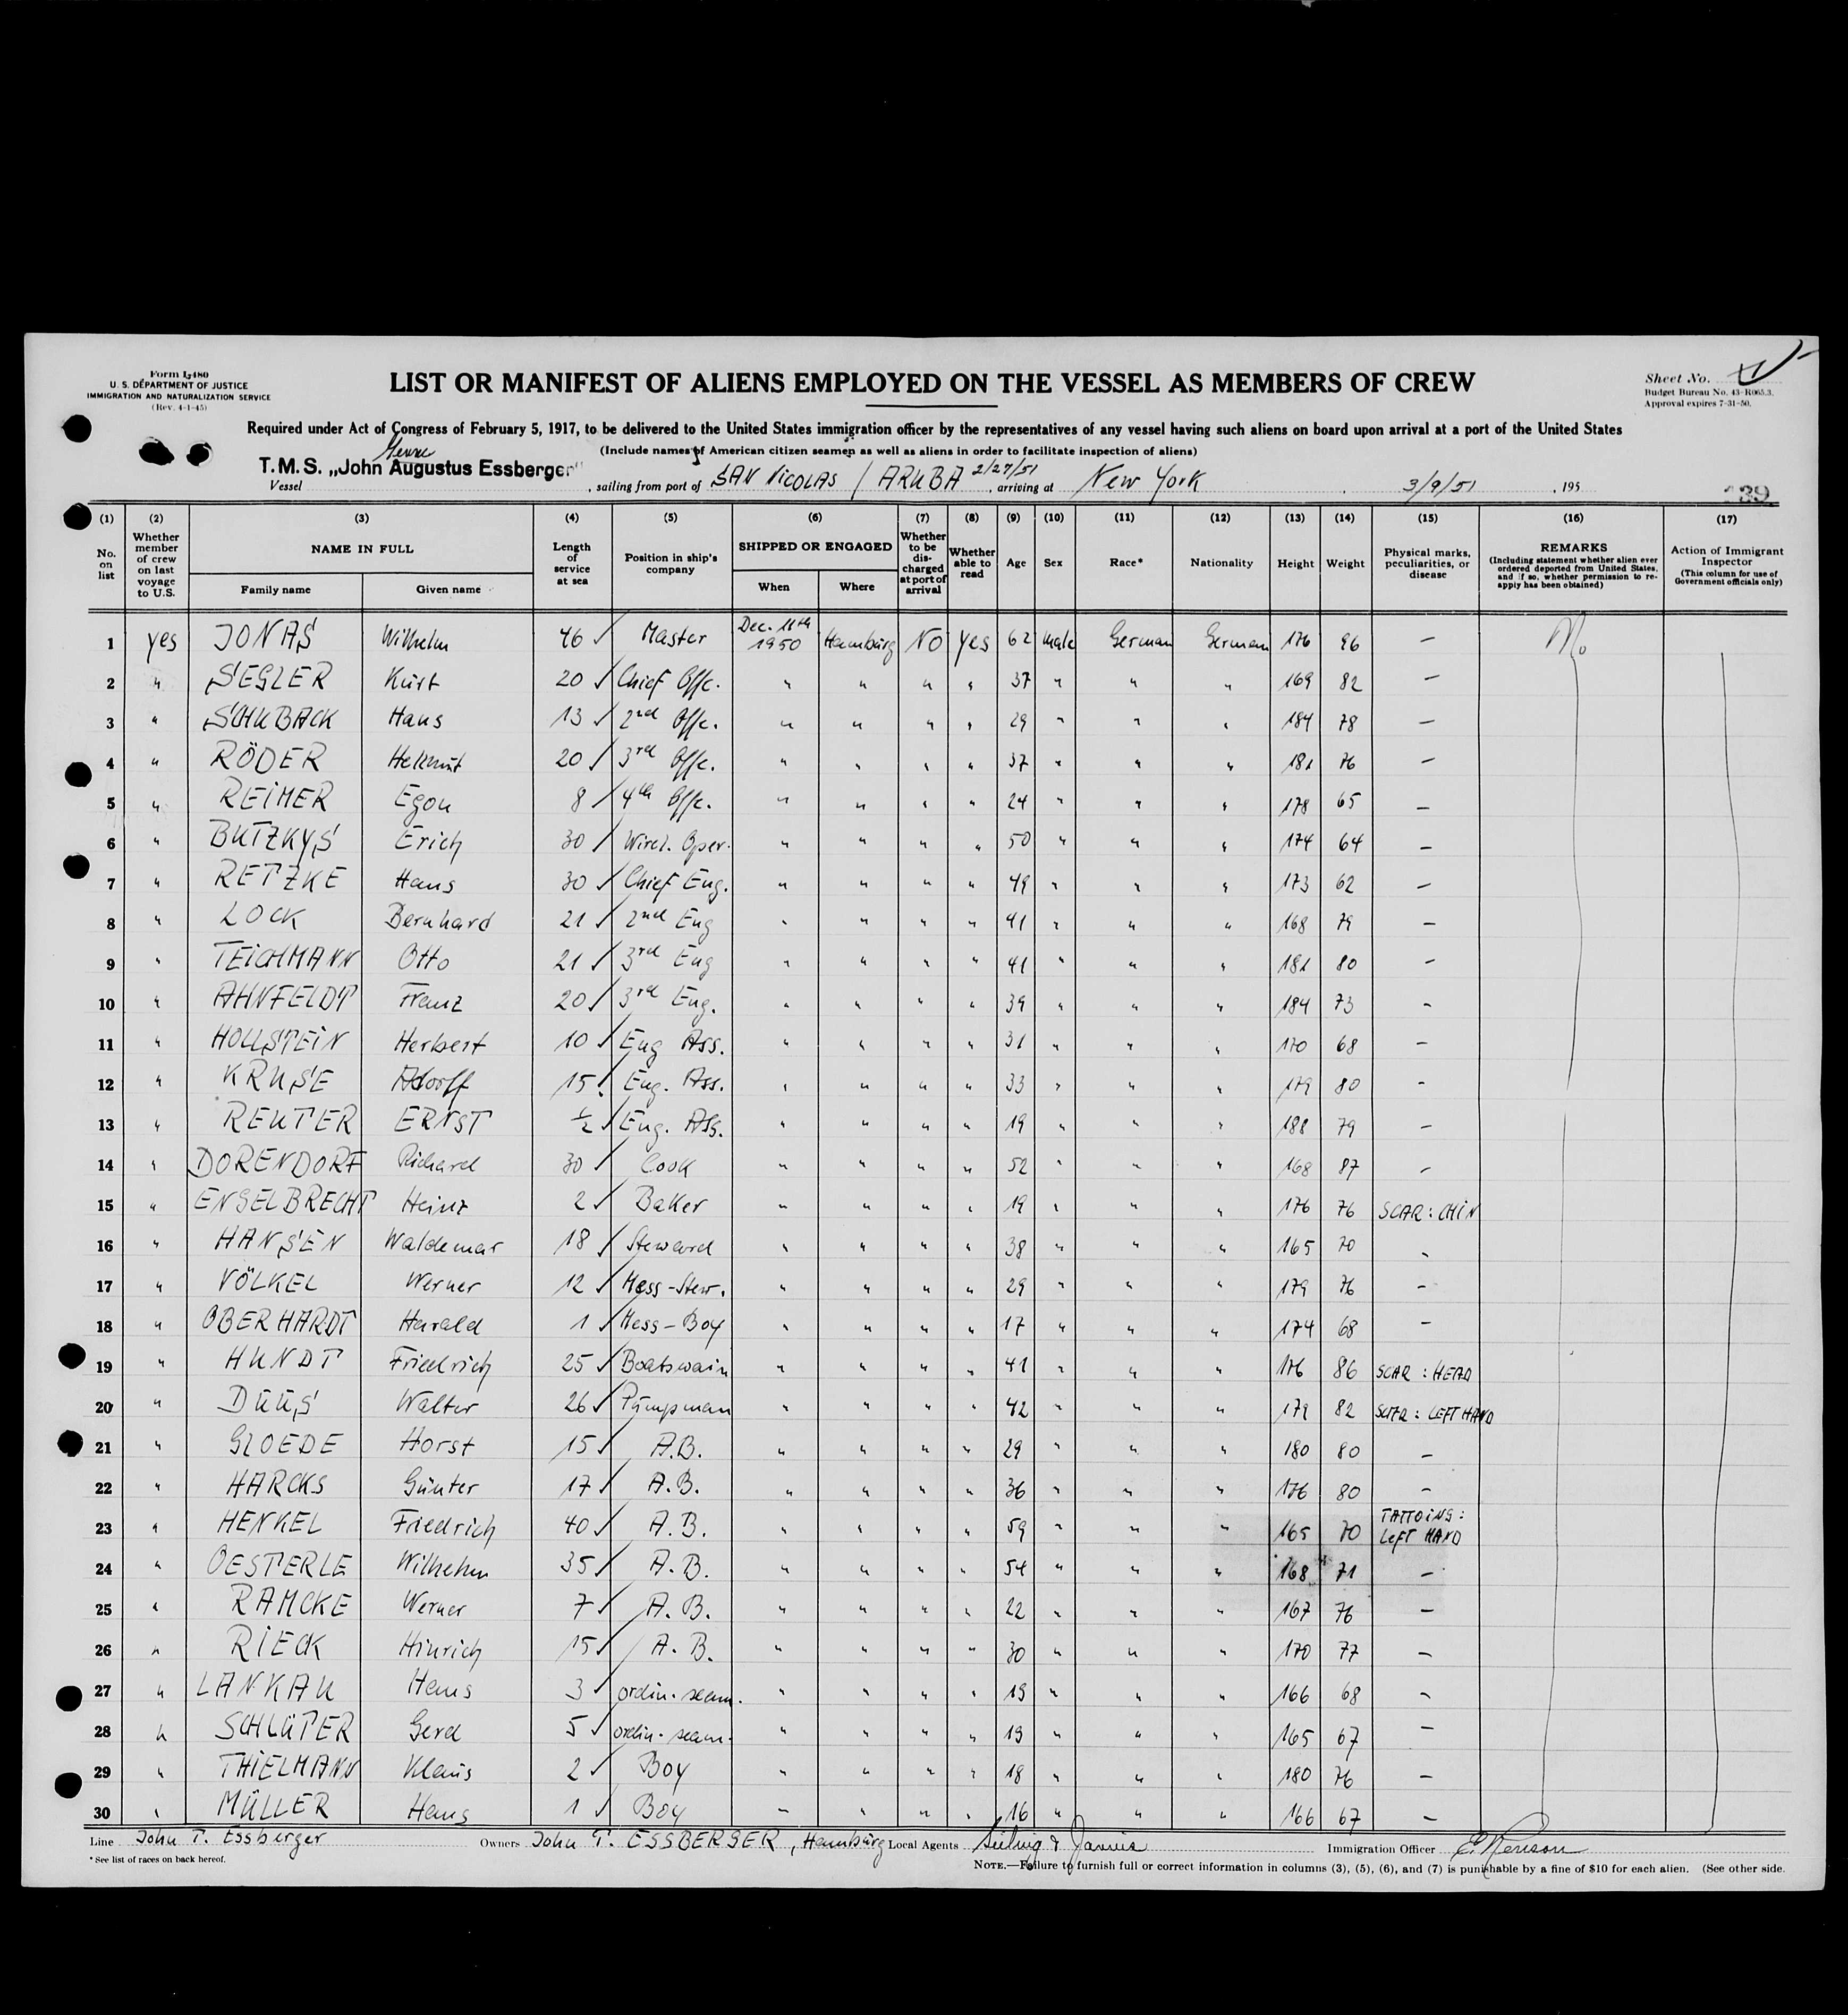 Form I-480
U. S. DEPARTMENT OF JUSTICE
IMMIGRATION AND NATURALIZATION SERVICE
(Rev. 4-1-45)
LIST OR MANIFEST OF ALIENS EMPLOYED ON THE VESSEL AS MEMBERS OF CREW
Sheet No.
Budget Bureau No. 43-R065.3.
Approval expires 7-31-50.
Required under Act of Congress of February 5, 1917, to be delivered to the United States immigration officer by the representatives of any vessel having such aliens on board upon arrival at a port of the United States
(Include names of American citizen seamen as well as aliens in order to facilitate inspection of aliens)
Vessel T.M.S. „John Augustus Essberger" , sailing from port of SAN NICOLAS / ARUBA 2/27/51 , arriving at New York , 3/9/51 , 195
39
(1) (2) (3) (4) (5) (6) (7) (8) (9) (10) (11) (12) (13) (14) (15) (16) (17)
No. on list
Whether member of crew on last voyage to U.S.
NAME IN FULL
Family name Given name
Length of service at sea
Position in ship's company
SHIPPED OR ENGAGED
When Where
Whether to be discharged at port of arrival
Whether able to read
Age Sex Race* Nationality Height Weight
Physical marks, peculiarities, or disease
REMARKS
(Including statement whether alien ever ordered deported from United States, and if so, whether permission to reapply has been obtained)
Action of Immigrant Inspector
(This column for use of Government officials only)
1 yes JONAS Wilhelm 46 Master Dec. 11th 1950 Hamburg NO yes 62 male German German 176 96 — No
2 " SEGLER Kurt 20 Chief Offc. " " " " 37 " " " 169 82 —
3 " SCHUBACK Hans 13 2nd Offc. " " " " 29 " " " 184 78 —
4 " RÖDER Hellmut 20 3rd Offc. " " " " 37 " " " 181 76 —
5 " REIMER Egon 8 4th Offc. " " " " 24 " " " 178 65 —
6 " BUTZKYS Erich 30 Wirel. Oper. " " " " 50 " " " 174 64 —
7 " RETZKE Hans 30 Chief Eng. " " " " 49 " " " 173 62 —
8 " LOCK Bernhard 21 2nd Eng " " " " 41 " " " 168 79 —
9 " TEICHMANN Otto 21 3rd Eng " " " " 41 " " " 181 80 —
10 " AHNFELDT Franz 20 3rd Eng. " " " " 39 " " " 184 73 —
11 " HOLLSTEIN Herbert 10 Eng Ass. " " " " 31 " " " 170 68 —
12 " KRUSE Adolf 15 Eng. Ass. " " " " 33 " " " 179 80 —
13 " REUTER ERNST ½ Eng. Ass. " " " " 19 " " " 188 79 —
14 " DORENDORF Richard 30 Cook " " " " 52 " " " 168 87 —
15 " ENGELBRECHT Heinz 2 Baker " " " " 19 " " " 176 76 SCAR: CHIN
16 " HANSEN Waldemar 18 Steward " " " " 38 " " " 165 70 —
17 " VÖLKEL Werner 12 Mess-Stew. " " " " 29 " " " 179 76 —
18 " OBERHARDT Harald 1 Mess-Boy " " " " 17 " " " 174 68 —
19 " HUNDT Friedrich 25 Boatswain " " " " 41 " " " 176 86 SCAR: HEAD
20 " DUUS Walter 26 Pumpman " " " " 42 " " " 179 82 SCAR: LEFT HAND
21 " GLOEDE Horst 15 A.B. " " " " 29 " " " 180 80 —
22 " HARCKS Günter 17 A.B. " " " " 36 " " " 176 80 —
23 " HENKEL Friedrich 40 A.B. " " " " 59 " " " 165 70 TATTOINS: LEFT HAND
24 " OESTERLE Wilhelm 35 A.B. " " " " 54 " " " 168 71 —
25 " RAMCKE Werner 7 A.B. " " " " 22 " " " 167 76 —
26 " RIECK Hinrich 15 A.B. " " " " 30 " " " 170 77 —
27 " LANKAU Hans 3 ordin. seam. " " " " 19 " " " 166 68 —
28 " SCHLÜTER Gerd 5 ordin. seam. " " " " 19 " " " 165 67 —
29 " THIELMANN Klaus 2 Boy " " " " 18 " " " 180 76 —
30 " MÜLLER Hans 1 Boy " " " " 16 " " " 166 67 —
Line John T. Essberger Owners John T. ESSBERGER, Hamburg Local Agents Immigration Officer
* See list of races on back hereof.
NOTE.—Failure to furnish full or correct information in columns (3), (5), (6), and (7) is punishable by a fine of $10 for each alien. (See other side.